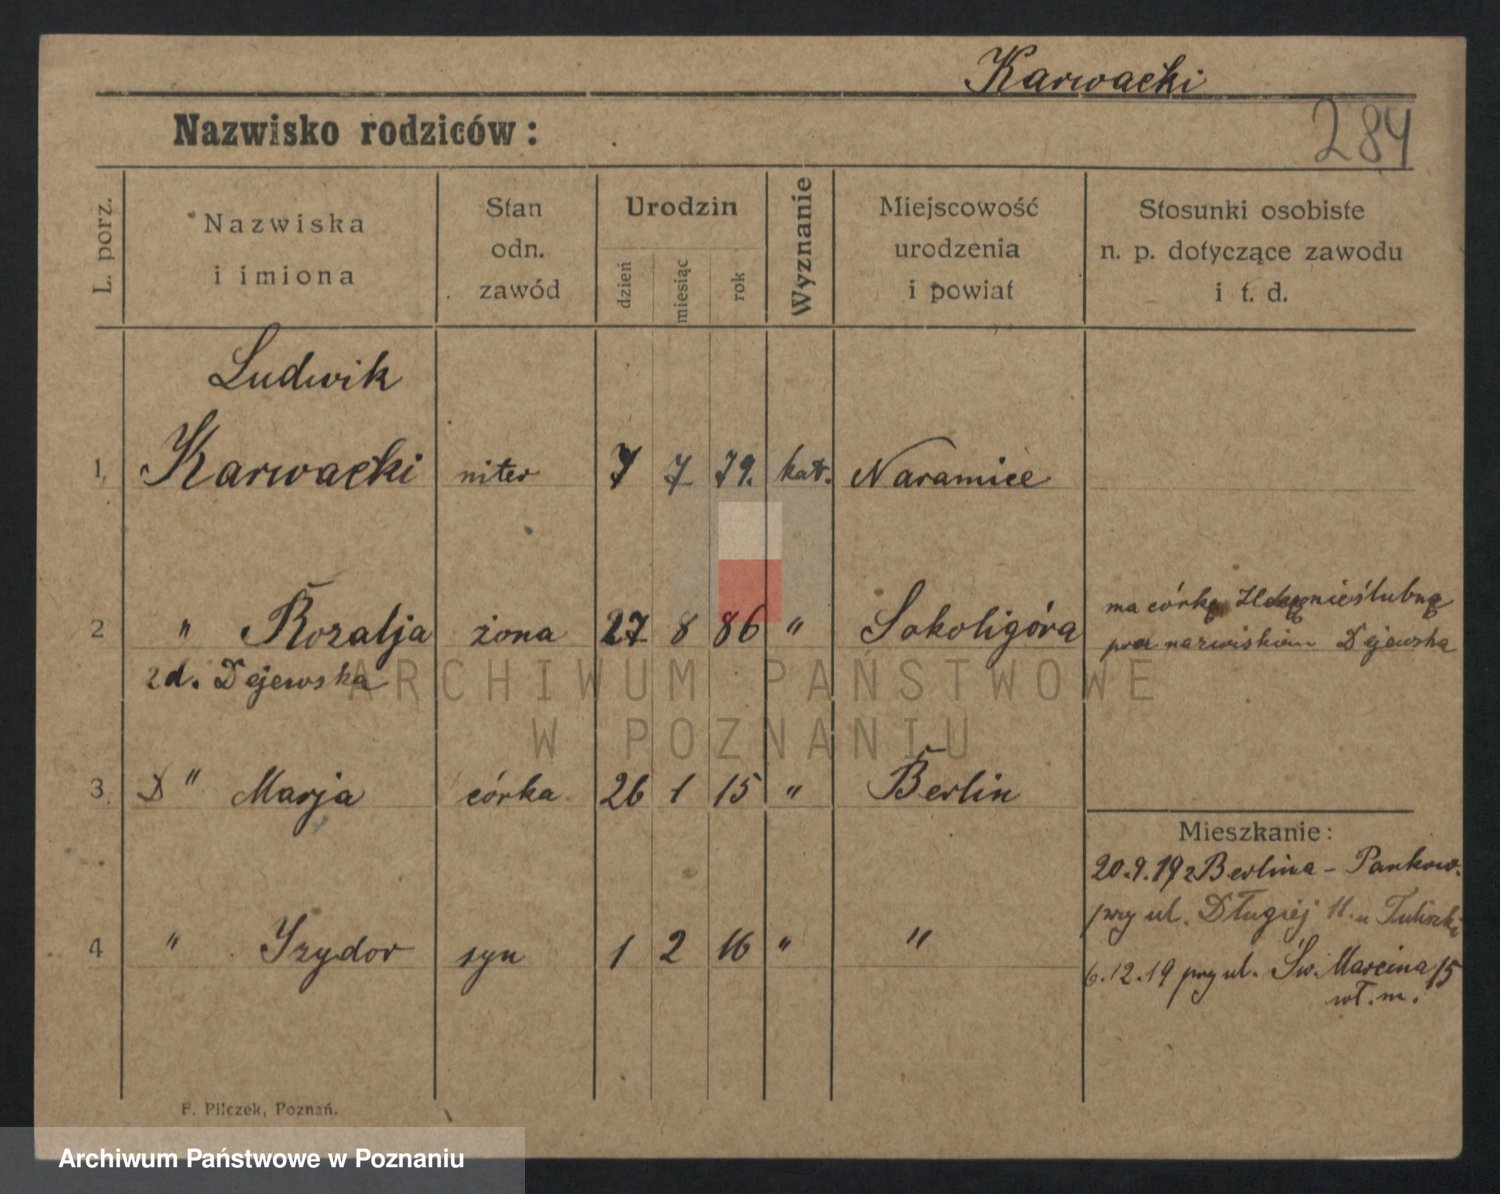 Karwacki
Nazwisko rodziców:
284
L. porz.
Nazwiska
i imiona
Stan
odn.
zawód
Urodzin
dzień
miesiąc
rok
Wyznanie
Miejscowość
urodzenia
i powiat
Stosunki osobiste
n. p. dotyczące zawodu
i t. d.
Ludwik
1, Karwacki niter 7 7 79. kat. Naramice
2 " Rozalja żona 27 8 86 " Sokoligóra
zd. Dejewska
ma córkę nieślubną
pod nazwiskiem Dejewska
3. " Marja córka 26 1 15 " Berlin
4 " Izydor syn 1 2 16 " "
Mieszkanie:
20.9.19 z Berlina - Pankow.
przy ul. Długiej 11. u
6.12.19 przy ul. Św. Marcina 15
wł. m.
F. Pilczek, Poznań.
ARCHIWUM PAŃSTWOWE
W POZNANIU
Archiwum Państwowe w Poznaniu